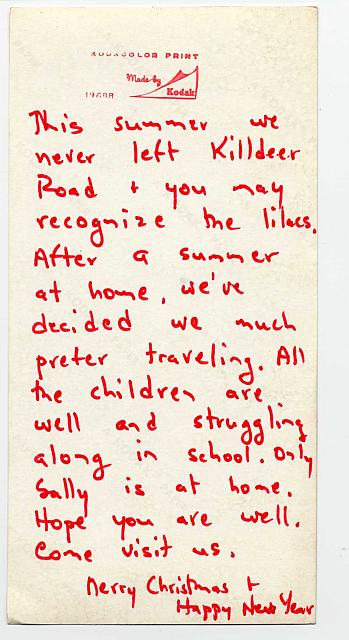 KODACOLOR PRINT
Made by
Kodak
This summer we
never left Killdeer
Road + you may
recognize the lilacs.
After a summer
at home, we've
decided we much
prefer traveling. All
the children are
well and struggling
along in school. Only
Sally is at home.
Hope you are well.
Come visit us.
Merry Christmas +
Happy New Year